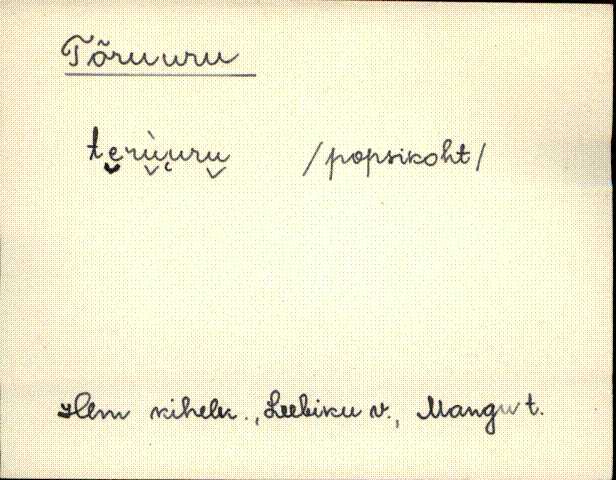 Tõruuru
te̮rù̬uru̬ /popsikoht/
Hlm kihelk., Leebiku v., Mangu t.